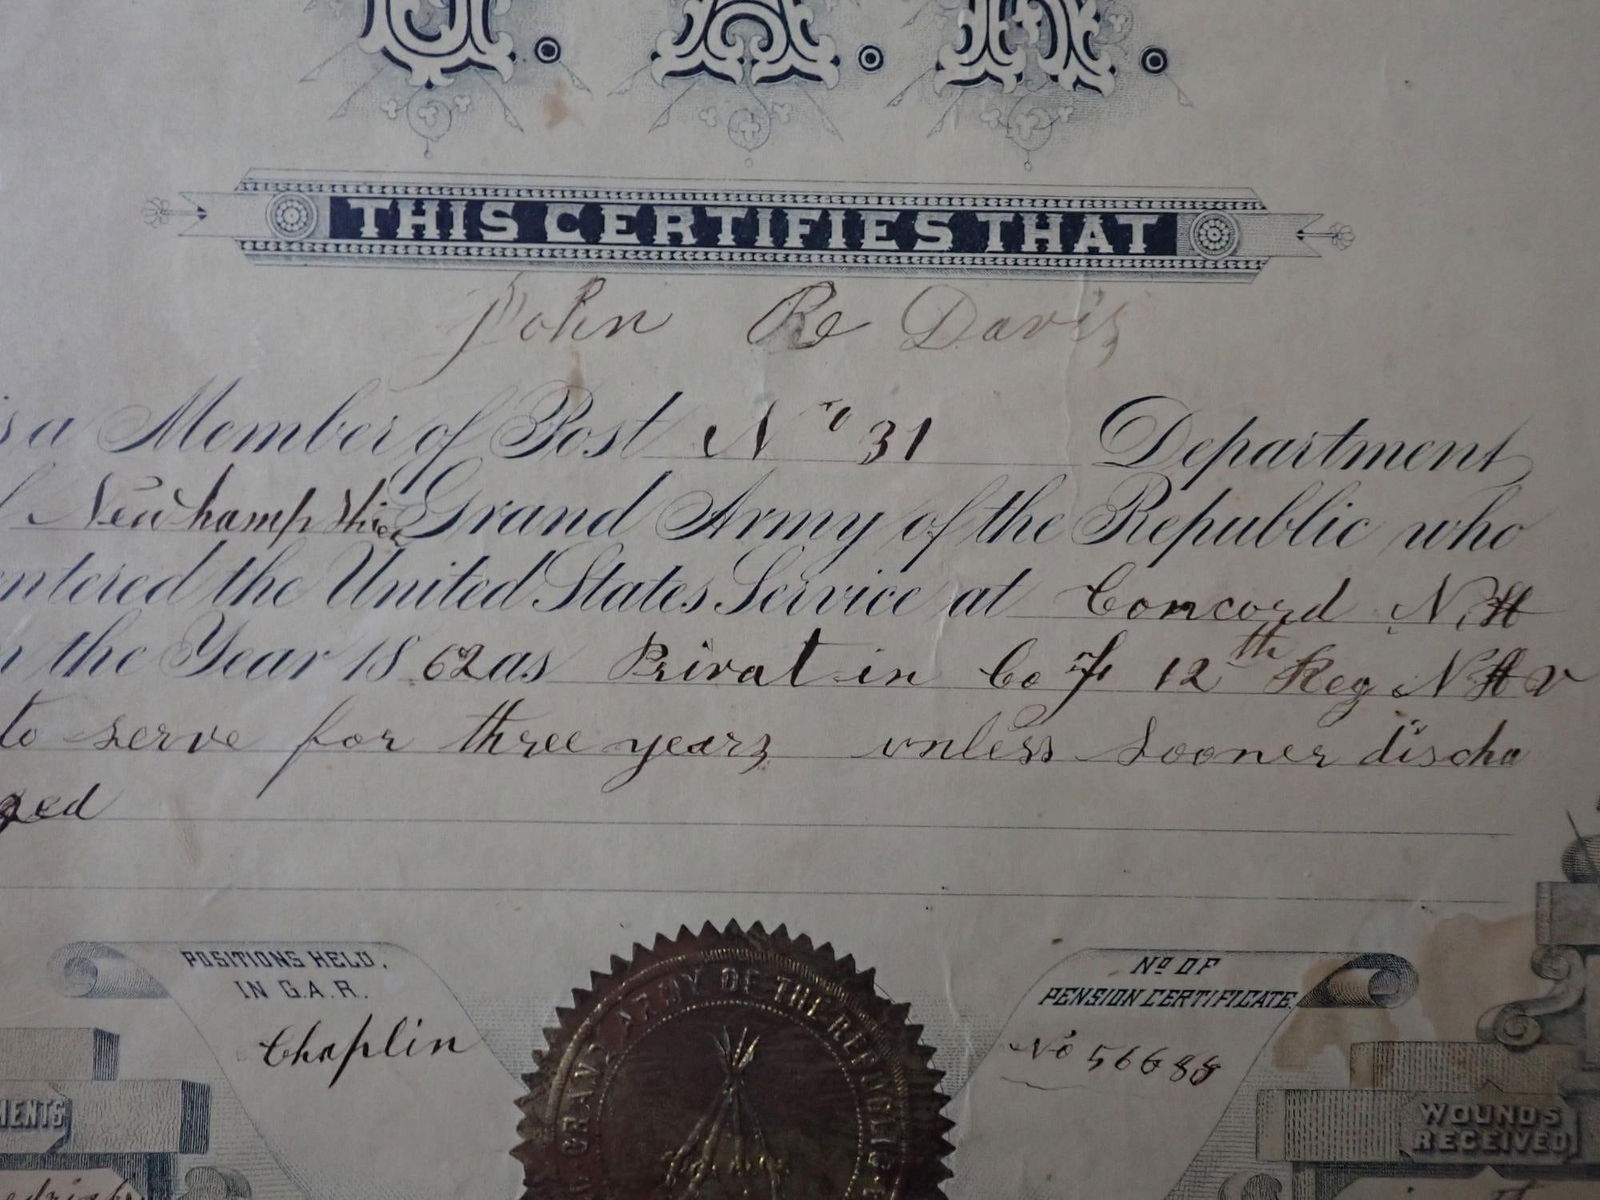 G. A. R.
THIS CERTIFIES THAT
John R Davis
is a Member of Post No 31 Department
Newhampshire Grand Army of the Republic who
entered the United States Service at Concord N.H
the Year 1862 as Privat in Co F 12th Reg N H V
to serve for three years unless sooner discha
ged
POSITIONS HELD,
IN G.A.R.
Chaplin
GRAND ARMY OF THE REPUBLIC
No OF
PENSION CERTIFICATE.
No 56688
MENTS
WOUNDS
RECEIVED